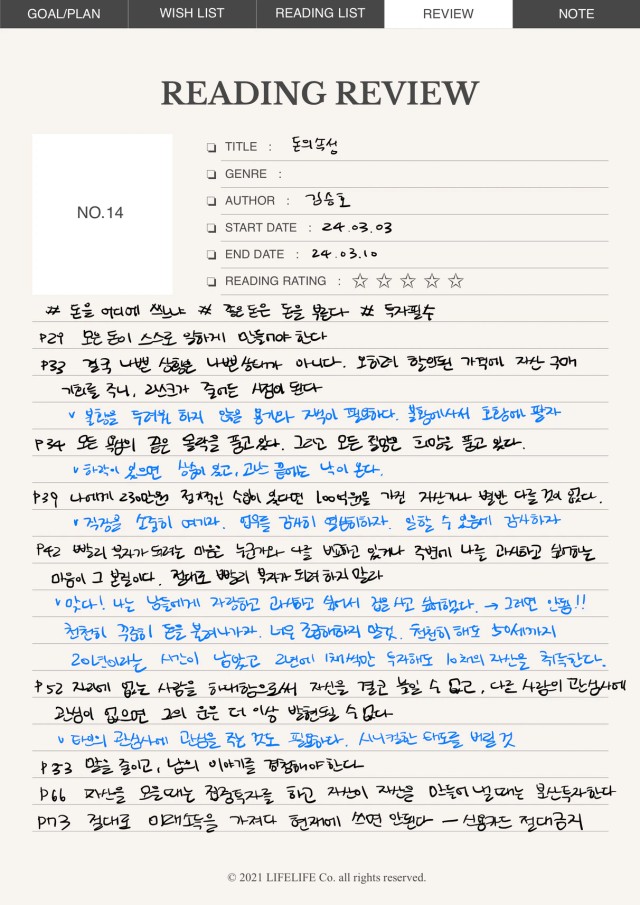 GOAL/PLAN WISH LIST READING LIST REVIEW NOTE
READING REVIEW
NO.14
TITLE : 돈의속성
GENRE :
AUTHOR : 김승호
START DATE : 24.03.03
END DATE : 24.03.10
READING RATING : ☆ ☆ ☆ ☆ ☆
# 돈을 어디에 쓰느냐 # 좋은돈은 돈을 부른다 # 투자필수
P29 모은 돈이 스스로 일하게 만들어야 한다
P33 결국 나쁜 상황은 나쁜상태가 아니다. 오히려 할인된 가격에 자산 구매
기회를 주니, 리스크가 줄어든 시점이 된다
v 불황을 두려워 하지 않을 용기와 지식이 필요하다. 불황에사서 호황에 팔자
P34 모든 욕심의 끝은 몰락을 품고 있다. 그리고 모든 절망은 희망을 품고 있다.
v 하락이 있으면 상승이 있고, 고난 끝에는 낙이 온다.
P39 나에게 230만원 정기적인 수입이 있다면 100억원을 가진 자산가나 별반 다를 것이 없다.
v 직장을 소중히 여기자. 업무를 감사히 열심히하자. 일할 수 있음에 감사하자
P42 빨리 부자가 되려는 마음은 누군가와 나를 비교하고 있거나 주변에 나를 과시하고 싶어하는
마음이 그 본질이다. 절대로 빨리 부자가 되려 하지 말라
v 맞다! 나는 남들에게 자랑하고 과시하고 싶어서 집을 사고 싶어했다. → 그러면 안돼!!
천천히 꾸준히 돈을 불려나가자. 너무 조급해하지 말것. 천천히 해도 50세까지
20년이라는 시간이 남았고 2년에 1채씩만 투자해도 10채의 자산을 취득한다.
P52 자리에 없는 사람을 하대함으로써 자신을 결코 높일 수 없고, 다른 사람의 관심사에
관심이 없으면 그의 운은 더 이상 발현될 수 없다
v 타인의 관심사에 관심을 주는 것도 필요하다. 시니컬한 태도를 버릴 것
P53 말을 줄이고, 남의 이야기를 경청해야 한다
P66 자산을 모을때는 집중투자를 하고 자산이 자산을 만들어 낼 때는 분산투자한다
P73 절대로 미래소득을 가져다 현재에 쓰면 안된다 — 신용카드 절대금지
© 2021 LIFELIFE Co. all rights reserved.